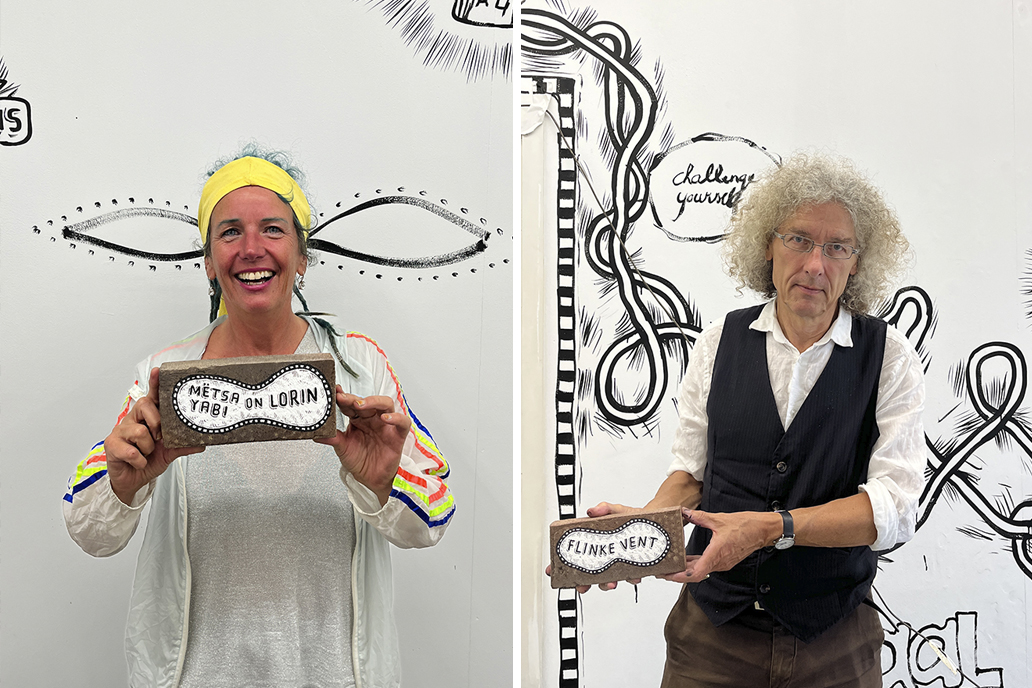 A4
MËTSA ON LORIN
YABI
challenge
yourself
FLINKE VENT